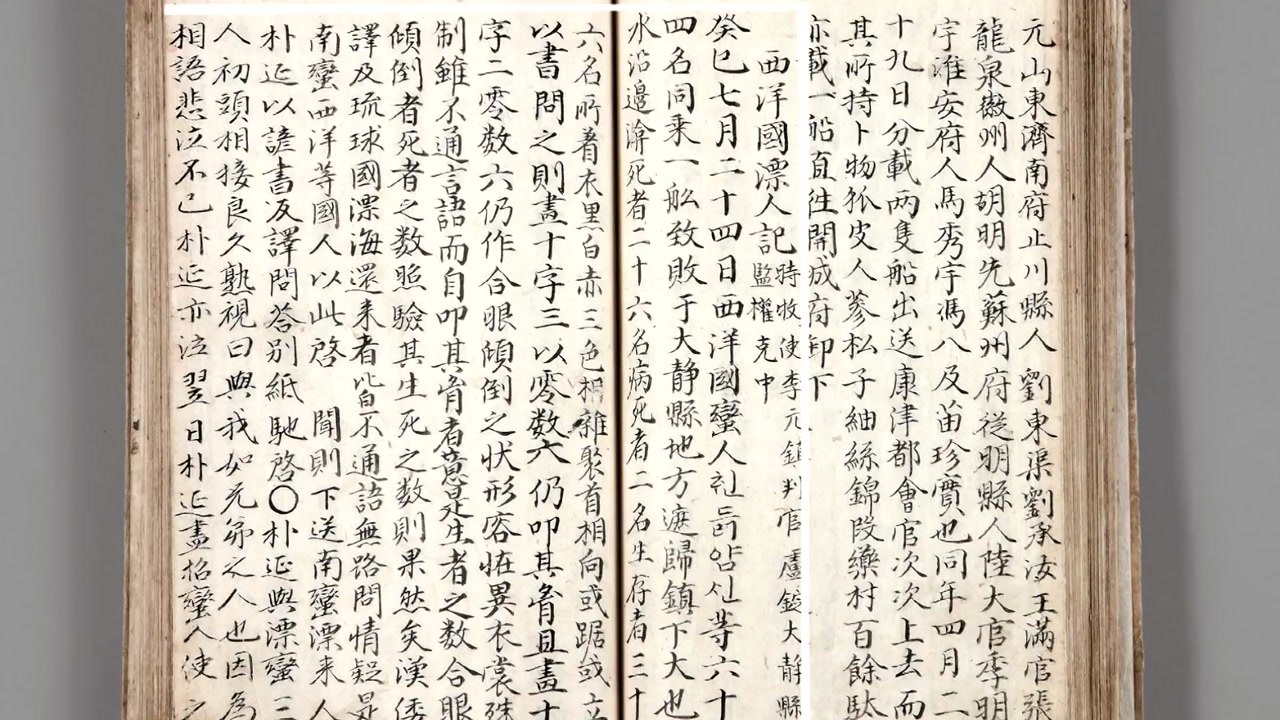 元山東濟南府止川縣人 劉東渠劉承汝王滿官張
龍泉徽州人胡明先蘇州府從明縣人陸大官季明
宇淮安府人馬秀宇馮八及笛珍寶也同年四月二
十九日分載两隻船出送康津都會官次次上去而
其所持卜物狐皮人蔘松子紬絲錦段藥村百餘駄
亦載一船直徃開城府卸下
西洋國漂人記 時收使李元鎮判官盧錠大静縣
監權克中
癸巳七月二十四日西洋國蠻人현듬얌신等六十
四名同乘一舩致敗于大静縣地方遮歸鎮下大也
水沿邊渰死者二十六名病死者二名生存者三十
六名所着衣黑白赤三色相雜聚首相向或踞或立
以書問之則畫十字三以零数六仍叩其胷且畫十
字二零数六仍作合眼傾倒之状形容恠異衣裳殊
制雖不通言語而自叩其胷者意是生者之数合眼
傾倒者死者之数照驗其生死之数則果然矣漢倭
譯及琉球國漂海還来者皆不通語無路問情疑是
南蠻西洋等國人以此啓 聞則下送南蠻漂来人
朴延以諺書反譯問荅別紙馳啓〇朴延與漂蠻三
人初頭相接良久熟視曰與我如兄弟之人也因為
相語悲泣不已朴延亦泣翌日朴延盡招蠻人使之